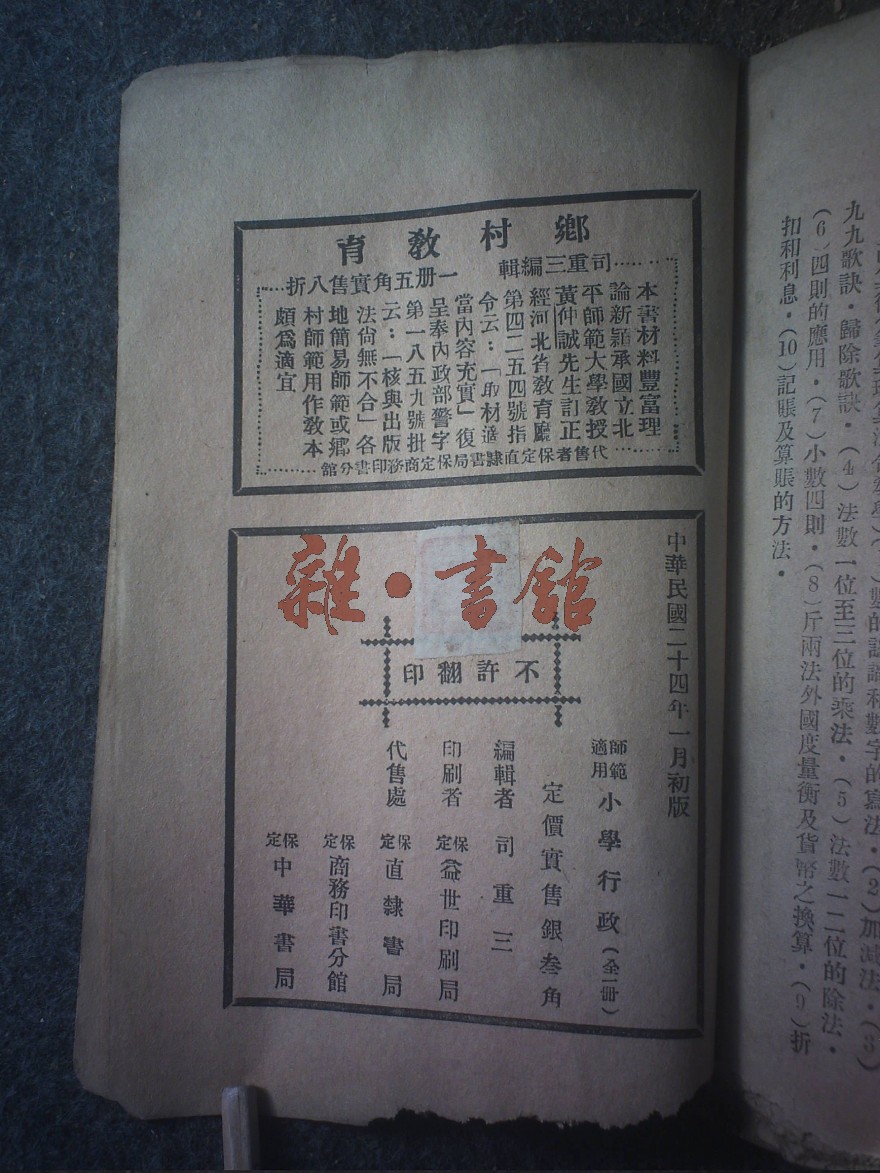 鄉村教育
司重三編輯 一册五角實售八折
本書材料豐富理
論新穎承國立北
平師範大學教授
黃仲誠先生訂正
經河北省教育廳
第四二五四號指
令云：「取材適
當內容充實」復
呈奉內政部警字
第一八五九號批
云：「核與出版
法尙無不合」各
地簡易師範或鄉
村師範用作教本
頗爲適宜
代售者保定直隸書局保定商務印書分館
雜·書館
不許翻印
中華民國二十四年一月初版
師範適用 小學行政（全一冊）
定價實售銀叁角
編輯者 司重三
印刷者 保定益世印刷局
代售處 保定直隸書局
保定商務印書分館
保定中華書局
數的認識和數字的寫法．（2）加減法．（3）
九九歌訣．歸除歌訣．（4）法數一位至三位的乘法．（5）法數一二位的除法．
（6）四則的應用．（7）小數四則．（8）斤兩法外國度量衡及貨幣之換算．（9）折
扣和利息．（10）記賬及算賬的方法．